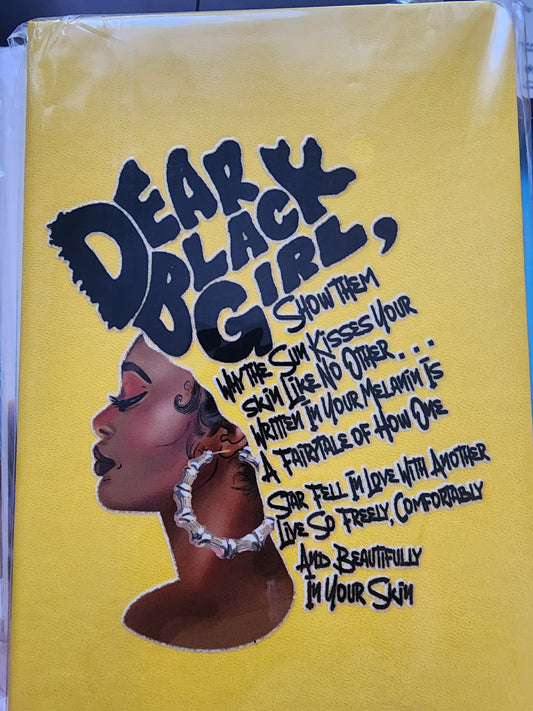 DEAR
BLACK
GIRL,
SHOW THEM
WHY THE SUN KISSES YOUR
SKIN LIKE NO OTHER . . .
WRITTEN IN YOUR MELANIN IS
A FAIRYTALE OF HOW ONE
STAR FELL IN LOVE WITH ANOTHER
LIVE SO FREELY, COMFORTABLY
AND BEAUTIFULLY
IN YOUR SKIN